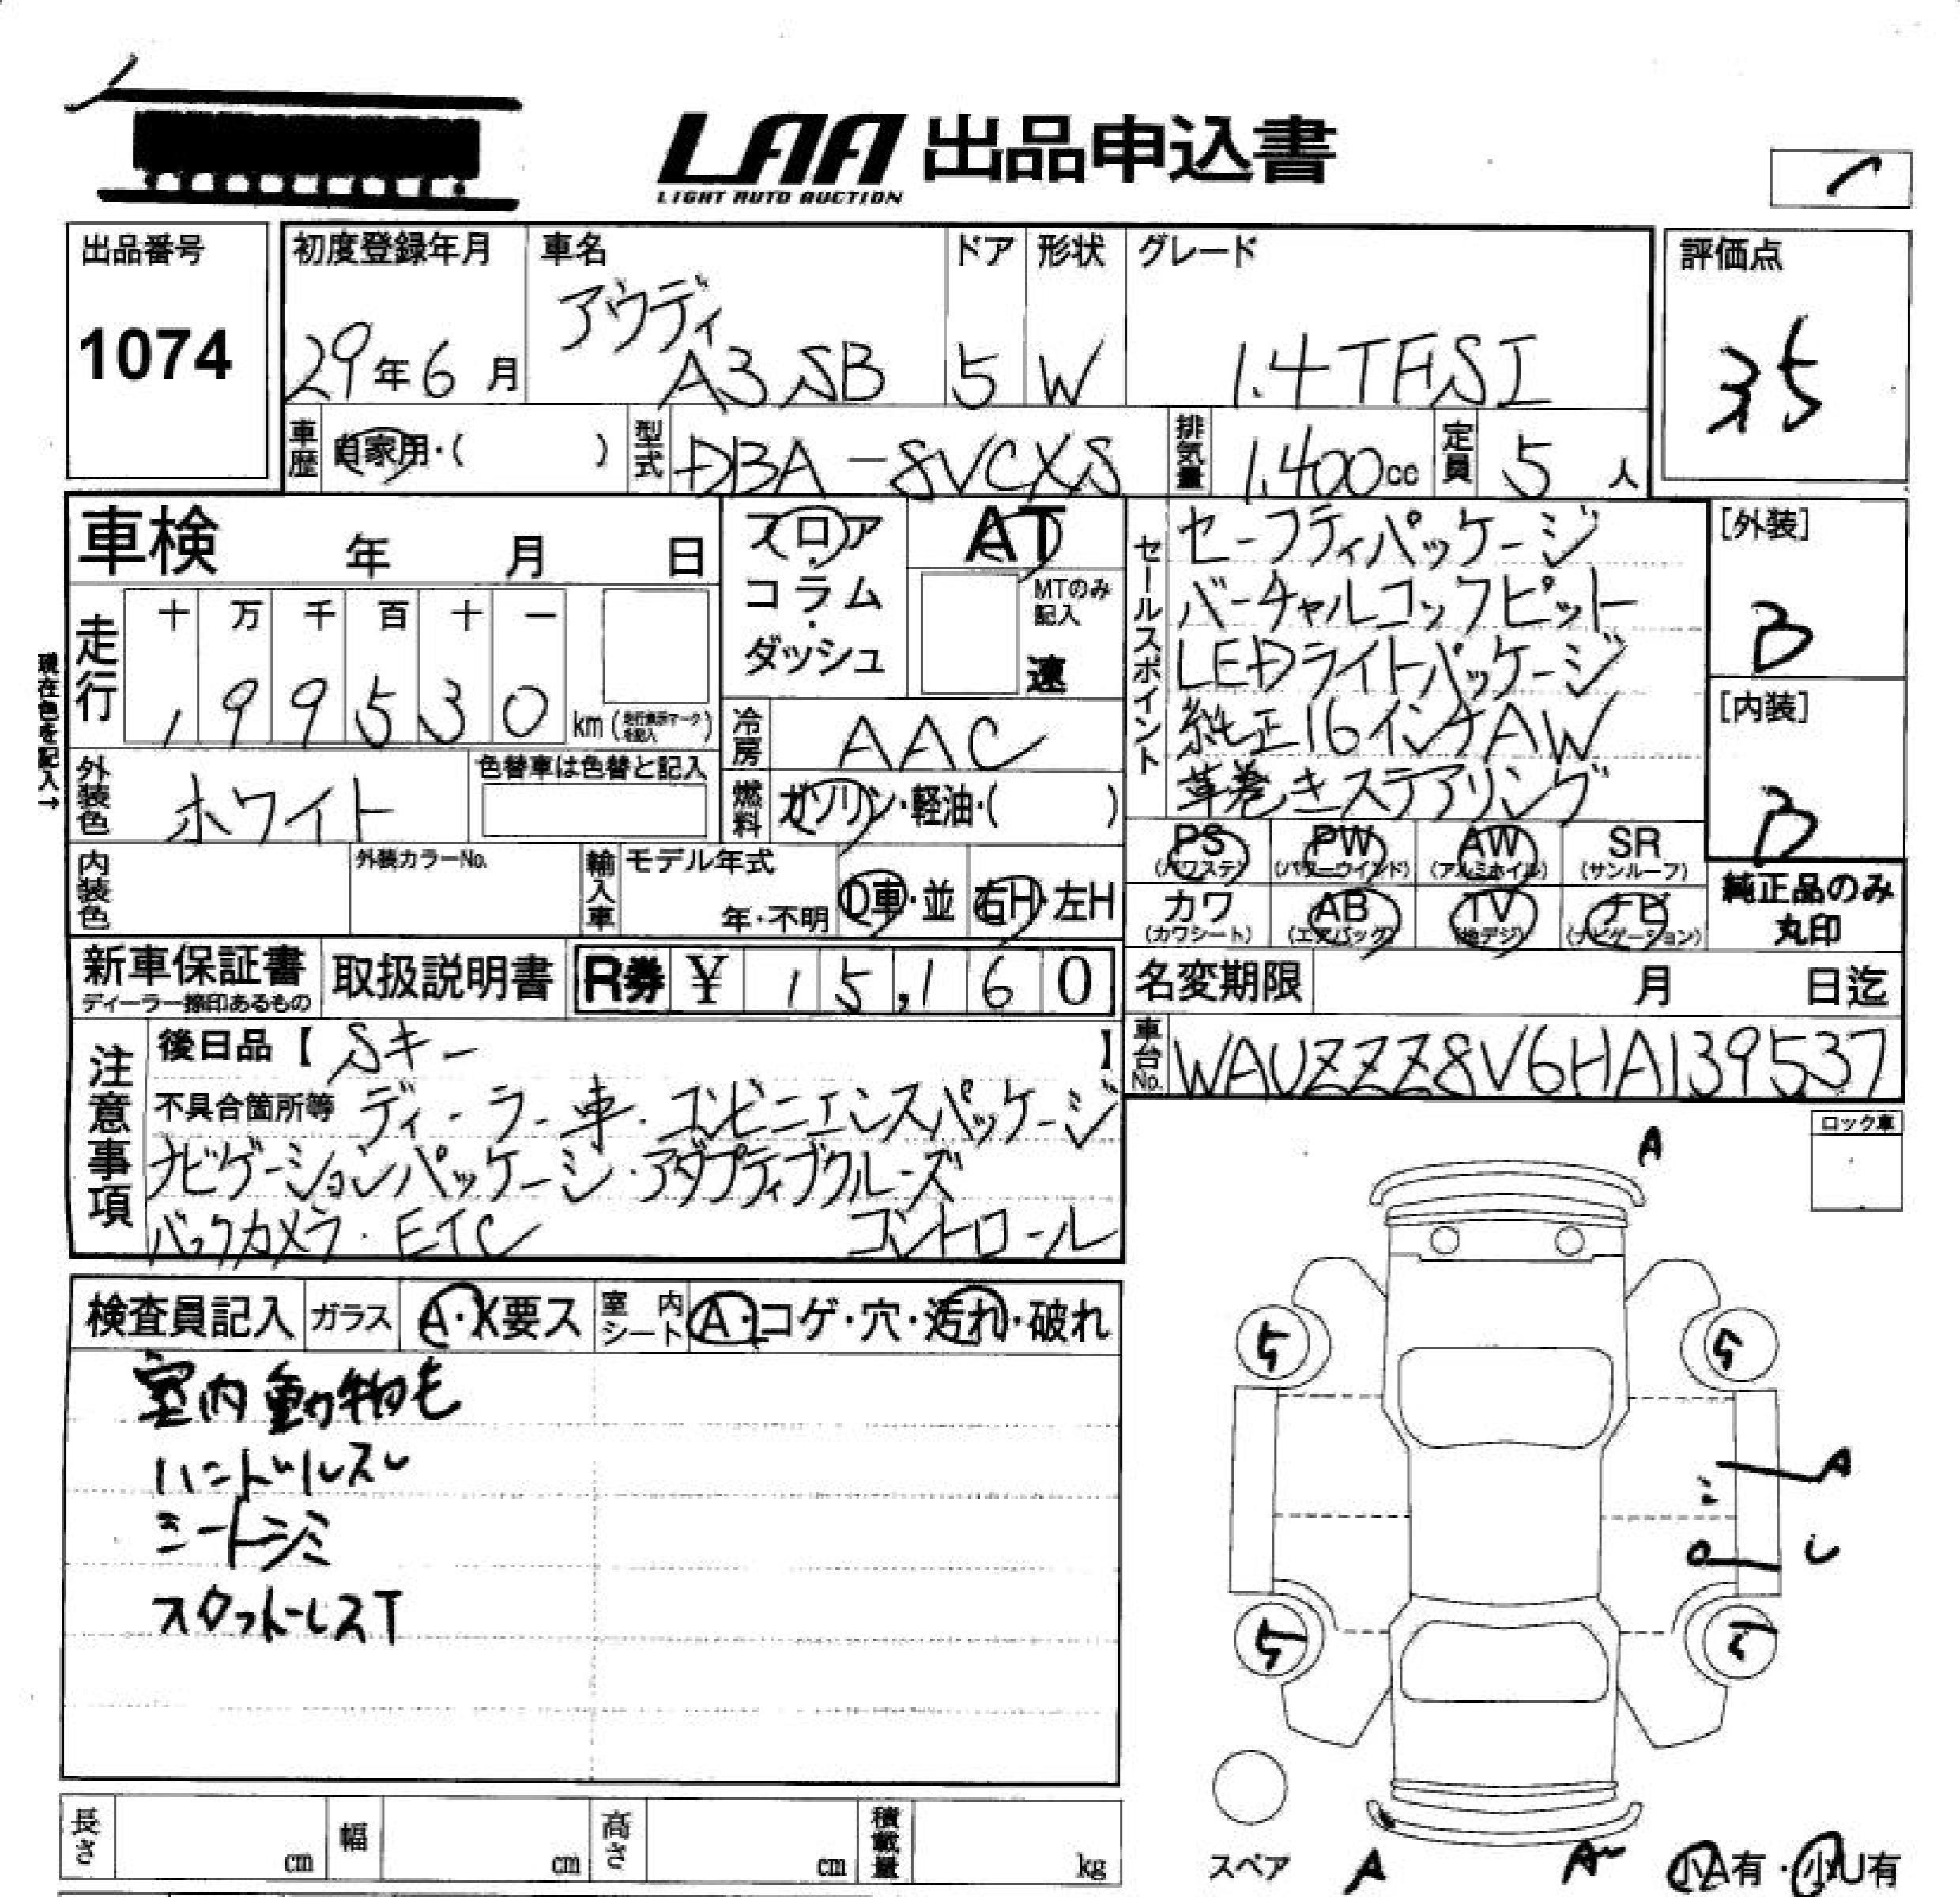 LAA 出品申込書
LIGHT AUTO AUCTION
出品番号
1074
初度登録年月
29年6月
車名
アウディ
A3 SB
ドア
5
形状
W
グレード
1.4TFSI
評価点
3.5
車歴
自家用・( )
型式
DBA-8VCXS
排気量
1,400cc
定員
5人
車検 年 月 日
フロア・コラム・ダッシュ
AT
MTのみ記入
速
走行
十 万 千 百 十 一
199530
km(走行表示マークを記入)
現在色を記入→
外装色
ホワイト
色替車は色替と記入
冷房
AAC
燃料
ガソリン・軽油・( )
内装色
外装カラーNo.
輸入車
モデル年式
年・不明
D車・並
右H・左H
セールスポイント
セーフティパッケージ
バーチャルコックピット
LEDライトパッケージ
純正16インチAW
革巻きステアリング
[外装]
B
[内装]
B
PS (パワステ)
PW (パワーウインド)
AW (アルミホイル)
SR (サンルーフ)
カワ (カワシート)
AB (エアバック)
TV (地デジ)
ナビ (ナビゲーション)
純正品のみ
丸印
新車保証書
ディーラー捺印あるもの
取扱説明書
R券 ¥ 15,160
名変期限 月 日迄
車台No.
WAUZZZ8V6HA139537
注意事項
後日品【 Sキー 】
不具合箇所等 ディーラー車・コンビニエンスパッケージ
ナビゲーションパッケージ・アダプティブクルーズ
バックカメラ・ETC コントロール
ロック車
検査員記入
ガラス
A・X要ス
室内シート
A・コゲ・穴・汚れ・破れ
室内動物毛
ハンドルスレ
シートシミ
スタットレスT
A
5
5
A
5
スペア
A
小A有・小U有
長さ cm
幅 cm
高さ cm
積載量 kg